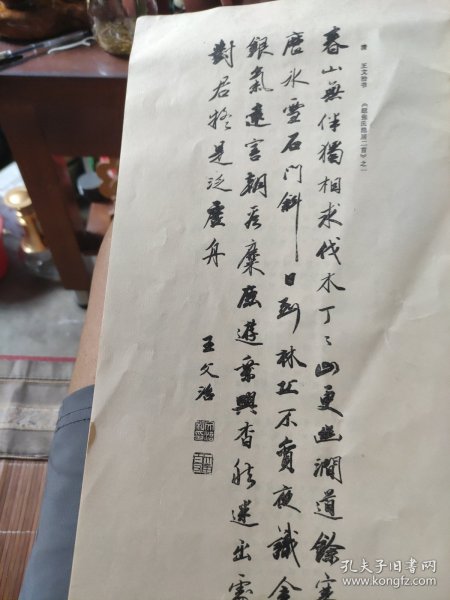 清 王文治书 《题张氏隐居二首》之一
春山無伴獨相求伐木丁〻山更幽澗道餘寒
歷冰雪石門斜日到林丘不貪夜識金
銀氣遠害朝看麋鹿遊乘興杳然迷出處
對君疑是泛虛舟
王文治
孔夫子旧书网
www.kongfz.com